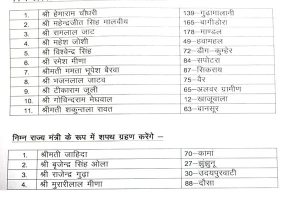 1. श्री हेमाराम चौधरी 139-गुढामालानी
2. श्री महेन्द्रजीत सिंह मालवीय 165-बागीडोरा
3. श्री रामलाल जाट 178-माण्डल
4. श्री महेश जोशी 49-हवामहल
5. श्री विश्वेन्द्र सिंह 72-डीग-कुम्हेर
6. श्री रमेश मीणा 84-सपोटरा
7. श्रीमती ममता भूपेश बैरवा 87-सिकराय
8. श्री भजनलाल जाटव 75-वैर
9. श्री टीकाराम जूली 65-अलवर ग्रामीण
10. श्री गोविन्दराम मेघवाल 12-खाजूवाला
11. श्रीमती शकुन्तला रावत 63-बानसूर
निम्न राज्य मंत्री के रूप में शपथ ग्रहण करेंगे –
1. श्रीमती जाहिदा 70-कामा
2. श्री बृजेन्द्र सिंह ओला 27-झुंझुनू
3. श्री राजेन्द्र गुढ़ा 30-उदयपुरवाटी
4. श्री मुरारीलाल मीणा 88-दौसा